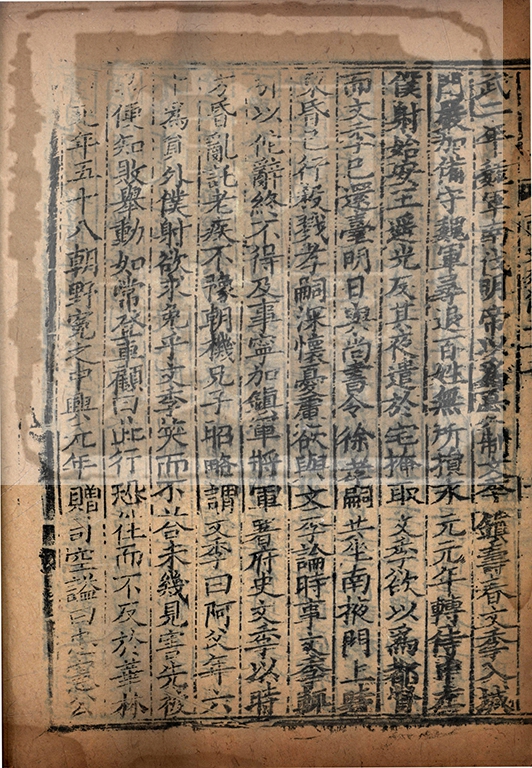 武二年魏軍南伐明帝以爲憂制文季鎮壽春文季入城
門嚴加備守魏軍尋退百姓無所損永元元年轉侍中左
僕射始安王遥光反其夜遣於宅掩取文季欲以爲都督
而文季已還臺明日與尚書令徐孝嗣共坐南掖門上時
東昏已行殺戮孝嗣深懷憂慮欲與文季論時事文季輒
引以佗辭終不得及事寧加鎮軍將軍署府史文季以時
方昏亂託老疾不豫朝機兄子昭略謂文季曰阿父年六
十爲員外僕射欲求免乎文季笑而不荅未幾見害先被
便知敗舉動如常登車顧曰此行恐往而不反於華林
死年五十八朝野寃之中興元年贈司空謚曰忠憲公